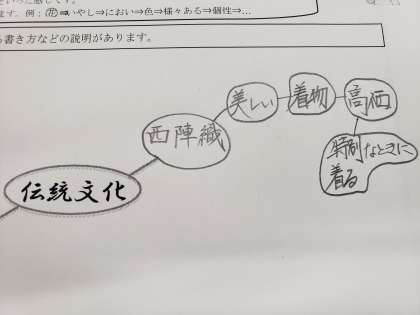 ます。例：㊀花⇒いやし⇒におい⇒色⇒様々ある⇒個性⇒…
書き方などの説明があります。
美しい
着物
高価
西陣織
特別なときに
着る
伝統文化